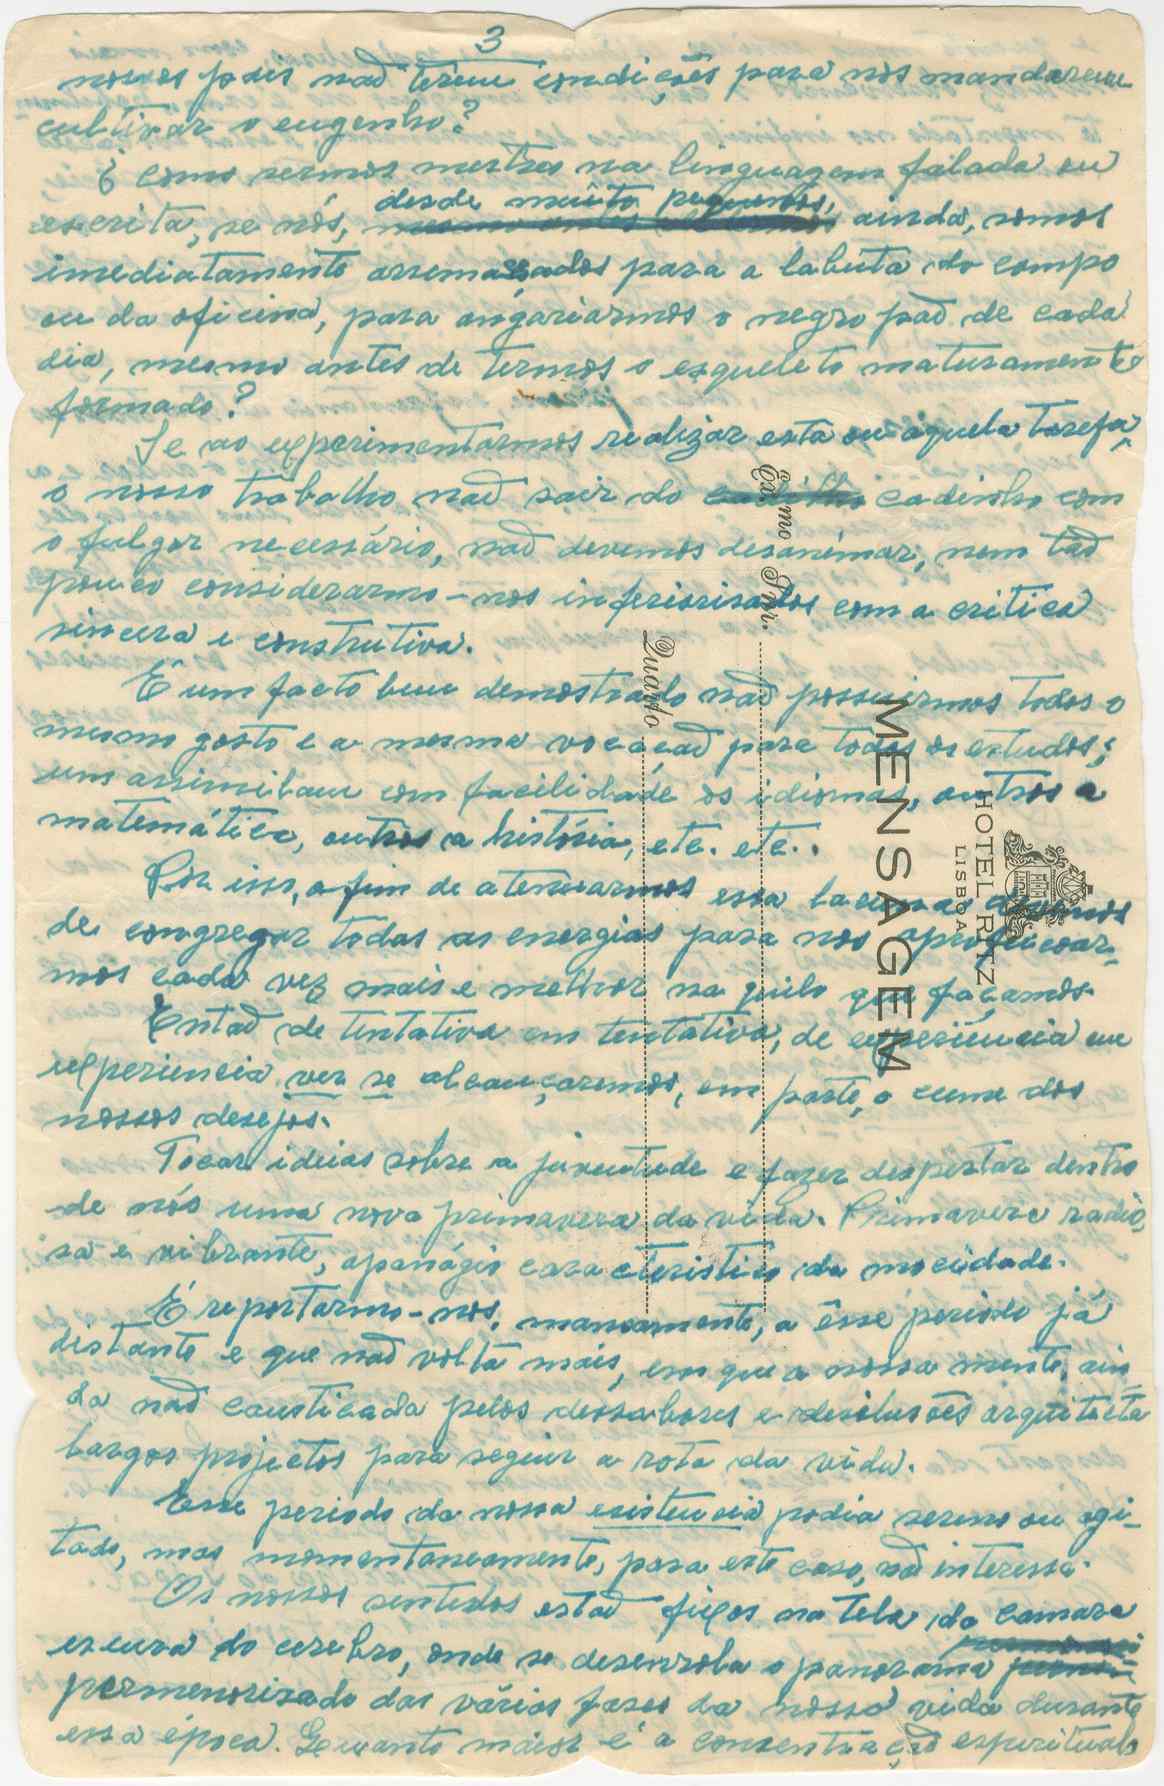 3
nossos pais não terem condições para nos mandarem
cultivar o engenho?
E como sermos mestres na linguagem falada ou
escrita, se nós, desde muito pequenos, ainda, somos
imediatamente arremassados para a labuta do campo
ou da oficina, para angariarmos o negro pão de cada
dia, mesmo antes de termos o esqueleto maturamente
formado?
Se ao experimentarmos realizar esta ou aquela tarefa,
o nosso trabalho não sair do cadinho com
o fulgor necessário, não devemos desanimar, nem tão
pouco considerarmo-nos inferiorisados com a critica
sincera e construtiva.
É um facto bem demostrado não possuirmos todos o
mesmo gosto e a mesma vocação para todos os estudos;
uns assimilam com facilidade os idiomas, outros a
matemática, outros a história, etc. etc..
Por isso, a fim de atenuarmos essa lacuna
de congregar todas as energias para nos aproficoar-
mos cada vez mais e melhor na quilo que façamos.
Então de tentativa em tentativa, de experiencia em
experiencia ver se alcançaremos, em parte, o cume dos
nossos desejos.
Tocar ideias sobre a juventude e fazer despertar dentro
de nós uma nova primavera da vida. Primavera radio,
sa e vibrante, apanágio caracteristico da mocidade.
É reportarmo-nos, mansamente, a êsse periodo já
distante e que não volta mais, em que a nossa mente, ain
da não causticada pelos dessabores e desilusões arquitecta
largos projectos para seguir a rota da vida.
Esse periodo da nossa existencia podia sereno ou agi-
tado, mas momentaneamente, para este caso, não interessa.
Os nossos sentidos estão fixos na tela da camara
escura do cerebro, onde se desenrola o panorama
permenorizado das várias fases da nossa vida durante
essa época. Quanto maior é a consentração espiritual
Exmo Snr.
Quarto
MENSAGEM
HOTEL RITZ
LISBOA